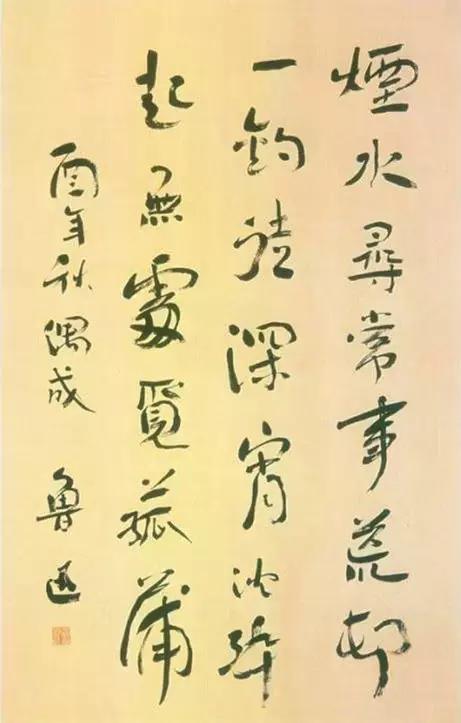 煙水尋常事荒邨
一釣徒深宵沈醉
起無處覓菰蒲
酉年秋偶成 魯迅